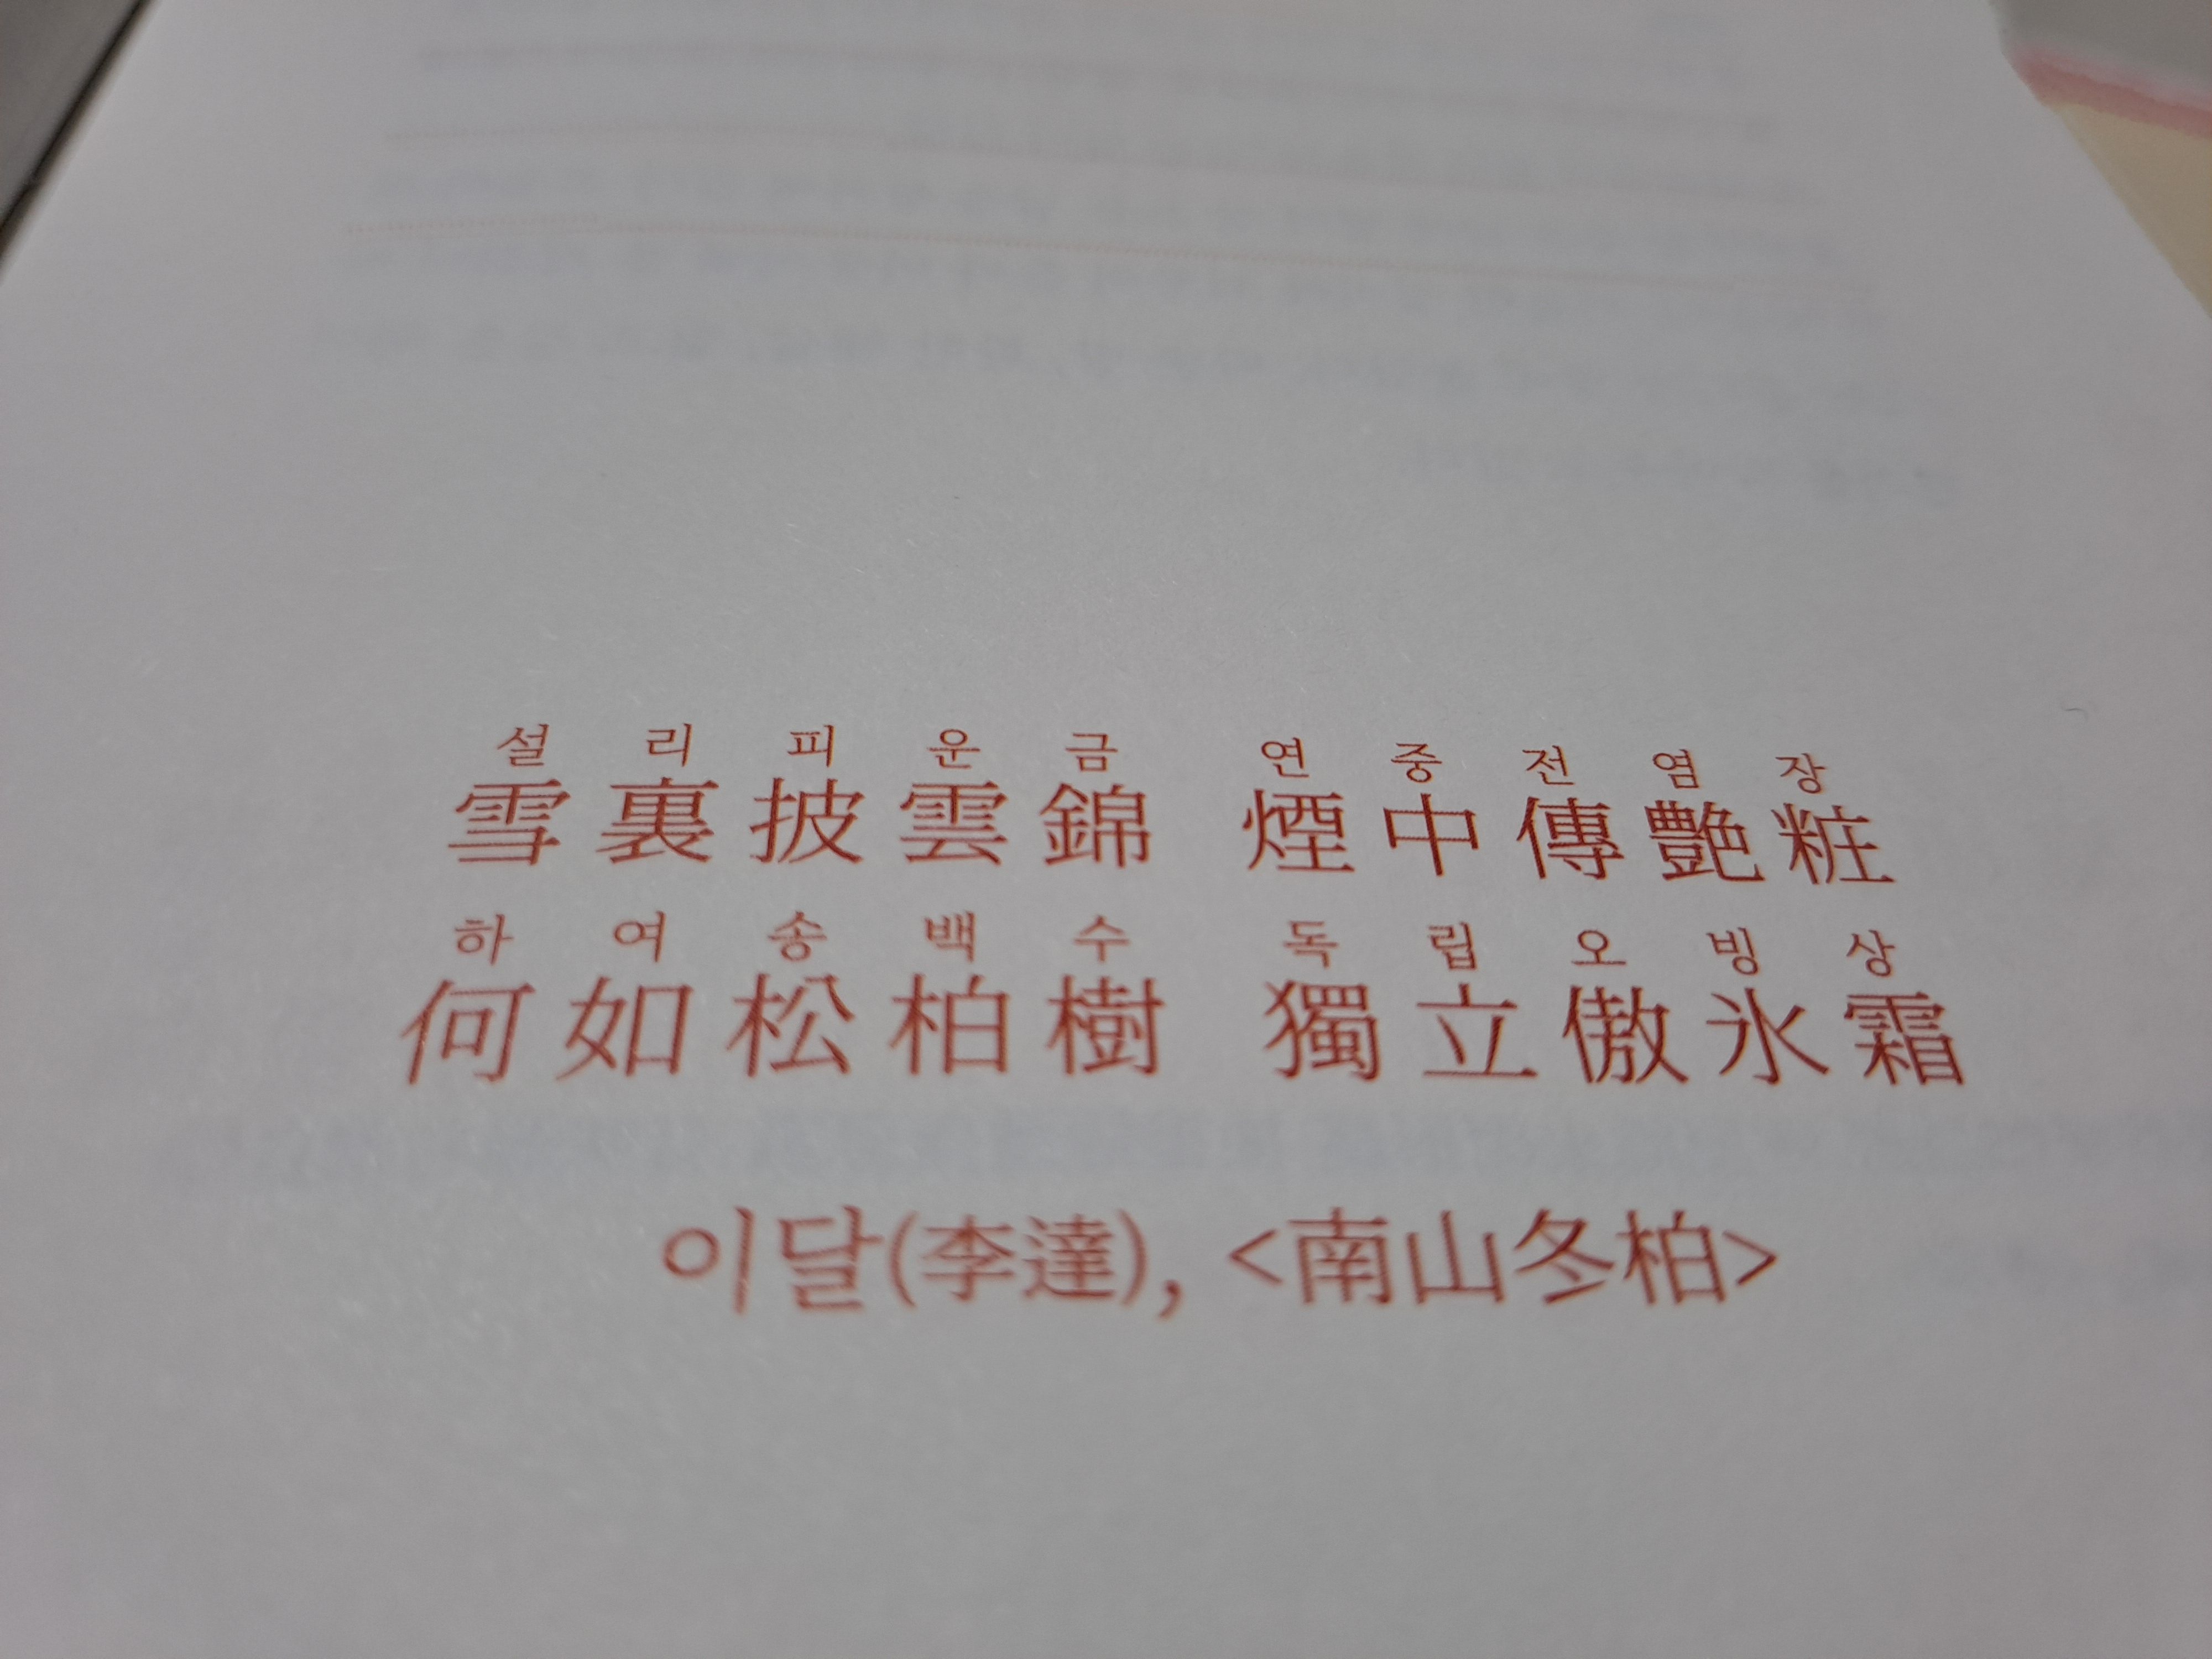 설 리 피 운 금 연 중 전 염 장
雪裏披雲錦 煙中傳艶粧
하 여 송 백 수 독 립 오 빙 상
何如松柏樹 獨立傲氷霜
이달(李達), <南山冬柏>